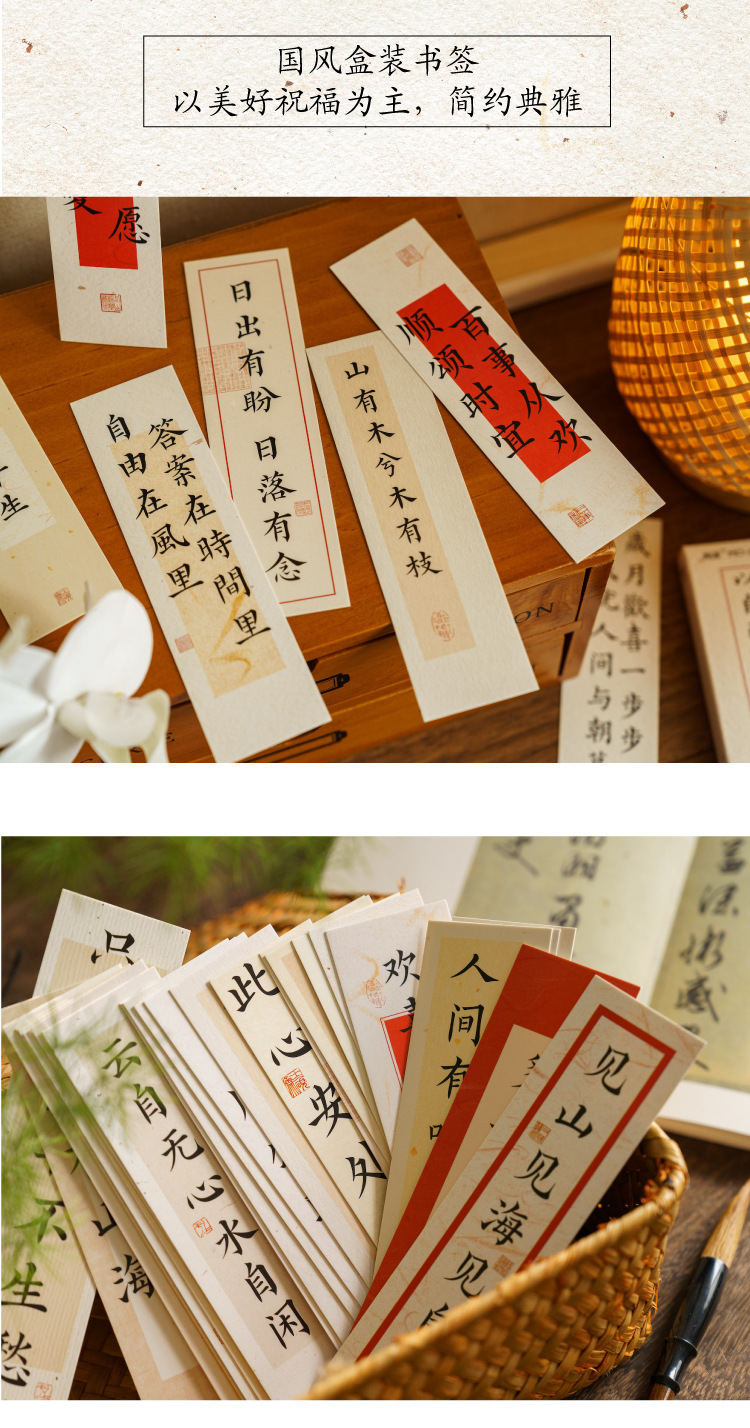 国风盒装书签
以美好祝福为主，简约典雅
愿
日出有盼 日落有念
山有木兮木有枝
百事从欢
顺颂时宜
答案在時間里
自由在風里
生
ON
歲月歡喜一步步
人间与朝
云自无心水自闲
此心安处
欢
人间有
见山见海见
山海
生愁